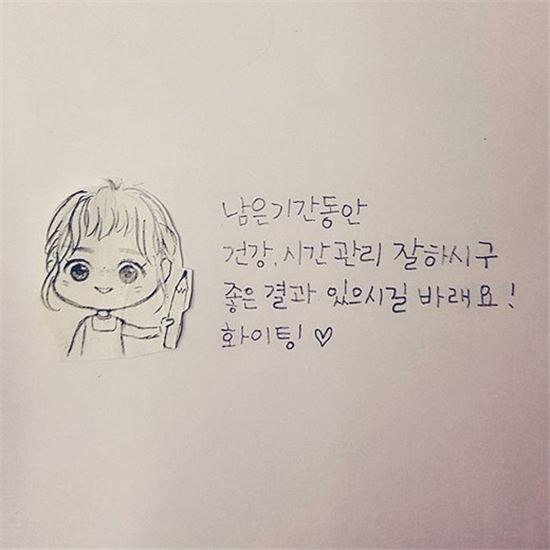 남은기간동안
건강, 시간관리 잘하시구
좋은 결과 있으시길 바래요!
화이팅! ♡